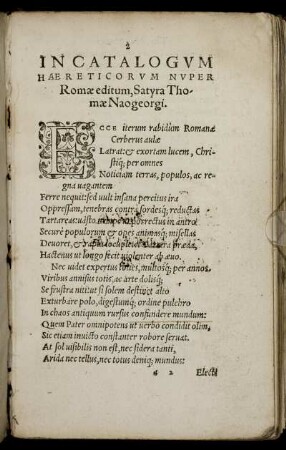 2
IN CATALOGVM
HAERETICORVM NVPER
Romæ editum, Satyra Tho-
mæ Naogeorgi.
ECCE iterum rabidùm Romanæ
Cerberus aulæ
Latrat: & exortam lucem, Chri-
stiq; per omnes
Noticiam terras, populos, ac re-
gna uagantem
Ferre nequit: sed uult insana percitus ira
Oppressam, tenebras contrà sordesq; reductas
Tartareas: isto ut porrectus in antro
Securè populorum & oges animasq; misellas
Deuoret, & præda,
Hactenus ut longo fecit uiolenter ab æuo.
Nec uidet expertus toties, multosq; per annos,
Viribus annisus totis, ac arte dolisq;
Se frustra niti: ut si solem destinet alto
Exturbare polo, digestumq; ordine pulchro
In chaos antiquum rursus confundere mundum:
Quem Pater omnipotens ut uerbo condidit olim,
Sic etiam inuicto constanter robore seruat.
At sol uisibilis non est, nec sidera tanti,
Arida nec tellus, nec totus deniq; mundus:
a 2 Electi